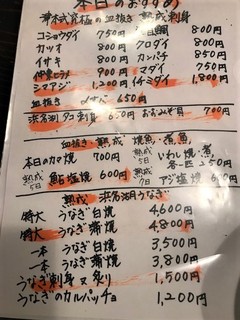 本日のおすすめ
津本式究極の血抜き 熟成刺身
コショウダイ 750円 真鯛 800円
カツオ 800円 クロダイ 800円
イサキ 800円 カンパチ 850円
900円 マダイ 750円
シマアジ 1,200円 イキミダイ 1,800円
血抜き メサバ 650円
浜名湖 タコ刺身 650円 700円
血抜き・熟成 焼魚・煮魚
本日のカマ焼 700円 熟成5日 いわし焼・煮 各一匹 350円
熟成5日 鮎塩焼 600円 熟成7日 アジ塩焼 600円
熟成 浜名湖うなぎ
特大 うなぎ白焼 4,600円
特大 うなぎ蒲焼 4,800円
一本 うなぎ白焼 3,500円
一本 うなぎ蒲焼 3,800円
うなぎ刺身 又 炙り 1,500円
うなぎのカルパッチョ 1,200円